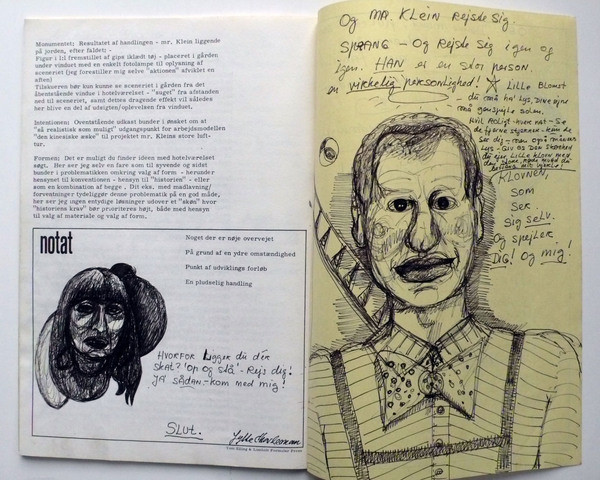 Monumentet: Resultatet af handlingen - mr. Klein liggende
på jorden, efter faldet: -
Figur i 1:1 fremstillet af gips klædt tøj - placeret i gården
under vinduet med en enkelt fotolampe til oplysning af
sceneriet (jeg forestiller mig selve "aktionen" afviklet en
aften)
Tilskueren bør kun kunne se sceneriet i gården fra det
åbentstående vindue i hotelværelset - "suget" fra afstanden
ned til sceneriet, samt dettes dragende effekt vil således
her blive en del af udsigten/oplevelsen fra vinduet.
Intentionen: Ovenstående udkast bunder i ønsket om at
"så realistisk som muligt" udgangspunkt for arbejdsmodellen
"den kinesiske æske" til projektet mr. Kleins store luft-
tur.
Formen: Det er muligt du finder ideen med hotelværelset
søgt. Her ser jeg selv en fare som til syvende og sidst
bunder i problematikken omkring valg af form - herunder
hensynet til konventionen - hensyn til "historien" - eller
som en kombination af begge. Dit eks. med mudlavning/
forventninger tydeliggør denne problematik på en god måde,
her ser jeg ingen entydige løsninger udover et "skøn" hvor
"historiens krav" bør prioriteres højt, både med hensyn
til valg af materiale og valg af form.
notat
Noget der er nøje overvejet
På grund af en ydre omstændighed
Punkt af udviklings forløb
En pludselig handling
HVORFOR Ligger du dér
SKAL? 'op og stå' - Rejs dig!
JA SÅDAN - kom med mig!
SLUT.
Og MR. KLEIN Rejste Sig.
SPRANG - Og Rejste Sig igen og
igen. HAN er en stor person
en virkelig personlighed! Lille Blomst
- du må ha' lys, dine øjne
må genspejle solen.
KLOVNEN,
SOM
Ser
Sig selv.
Og spejler
DIG! Og mig!